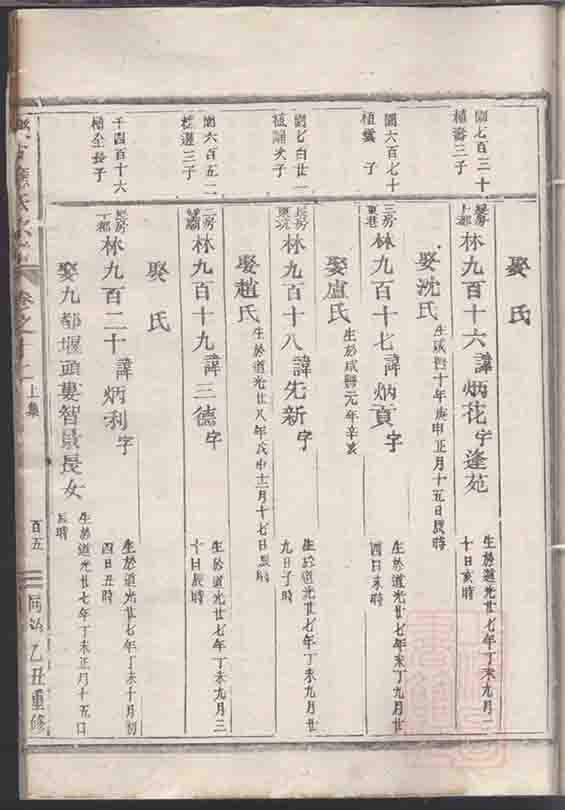 娶氏
蘭七百三十
植壽三子
林九百十六諱炳花字逢苑
生於道光廿七年丁未九月二
十日亥時
娶沈氏
生咸豐十年庚申正月十五日辰時
蘭六百七十
植雲子
三房
東巷
林九百十七諱炳貢字
生於道光廿七年未丁九月廿
四日未時
娶盧氏
生於咸豐元年辛亥
蘭七百廿一
植誦次子
長房
林九百十八諱先新字
生於道光廿七年丁未九月廿
九日子時
娶趙氏
生於道光廿八年戊申十二月十七日辰時
蘭六百五二
三子
房
林九百十九諱三德字
生於道光廿七年丁未九月三
十日辰時
娶氏
千四百十六
植全長子
長房
下都
林九百二十諱炳利字
生於道光廿七年丁未十月初
四日丑時
娶九都堰頭婁智景長女
生於道光廿七年丁未正月十五日
辰時
氏
卷之十二
上集
百五
同治乙丑重修